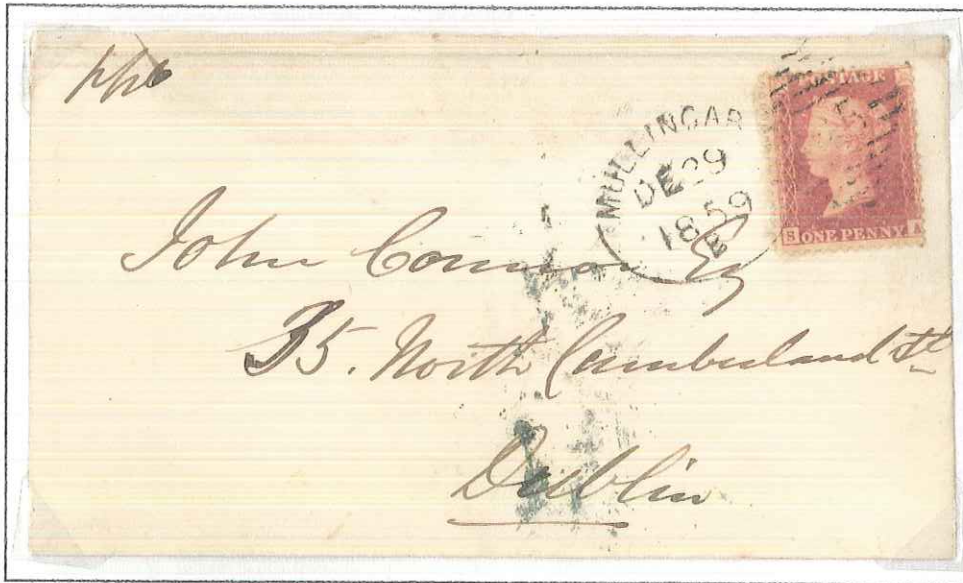 MULLINGAR
DE 29
1859
E
POSTAGE
S ONE PENNY A
John Connor Esq
35. North Cumberland St
Dublin